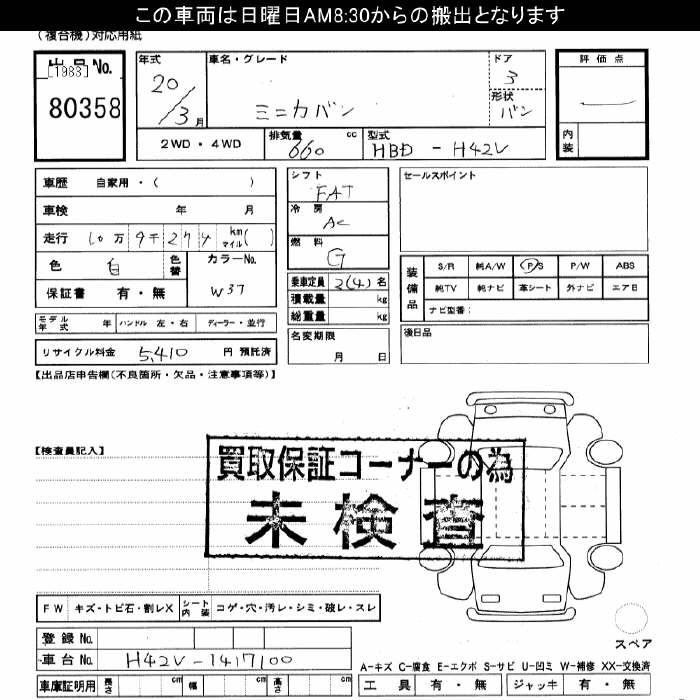 この車両は日曜日AM8:30からの搬出となります
(複合機)対応用紙
出品No.
[1983]
80358
年式
20/3月
車名・グレード
ミニカバン
ドア
3
形状
バン
評価点
内装
2WD・4WD
排気量 660 cc
型式 HBD - H42V
車歴 自家用・( )
車検 年 月
走行 10万9千274 km マイル( )
色 白 色替
カラーNo. W37
保証書 有・無
モデル年式 年 ハンドル 左・右 ディーラー・並行
リサイクル料金 5,410 円 預託済
シフト FAT
冷房 AC
燃料 G
乗車定員 2(4) 名
積載量 kg
総重量 kg
名変期限
月 日
セールスポイント
装備品
S/R 純A/W P/S P/W ABS
純TV 純ナビ 革シート 外ナビ エアB
ナビ型番:
後日品
【出品店申告欄(不良箇所・欠品・注意事項等)】
【検査員記入】
買取保証コーナーの為
未検査
FW キズ・トビ石・割レX シート内装 コゲ・穴・汚レ・シミ・破レ・スレ
登録No.
車台No. H42V-1417100
車庫証明用 長さ cm 幅 cm 高さ cm
スペア
A-キズ C-腐食 E-エクボ S-サビ U-凹ミ W-補修 XX-交換済
工具 有・無 ジャッキ 有・無